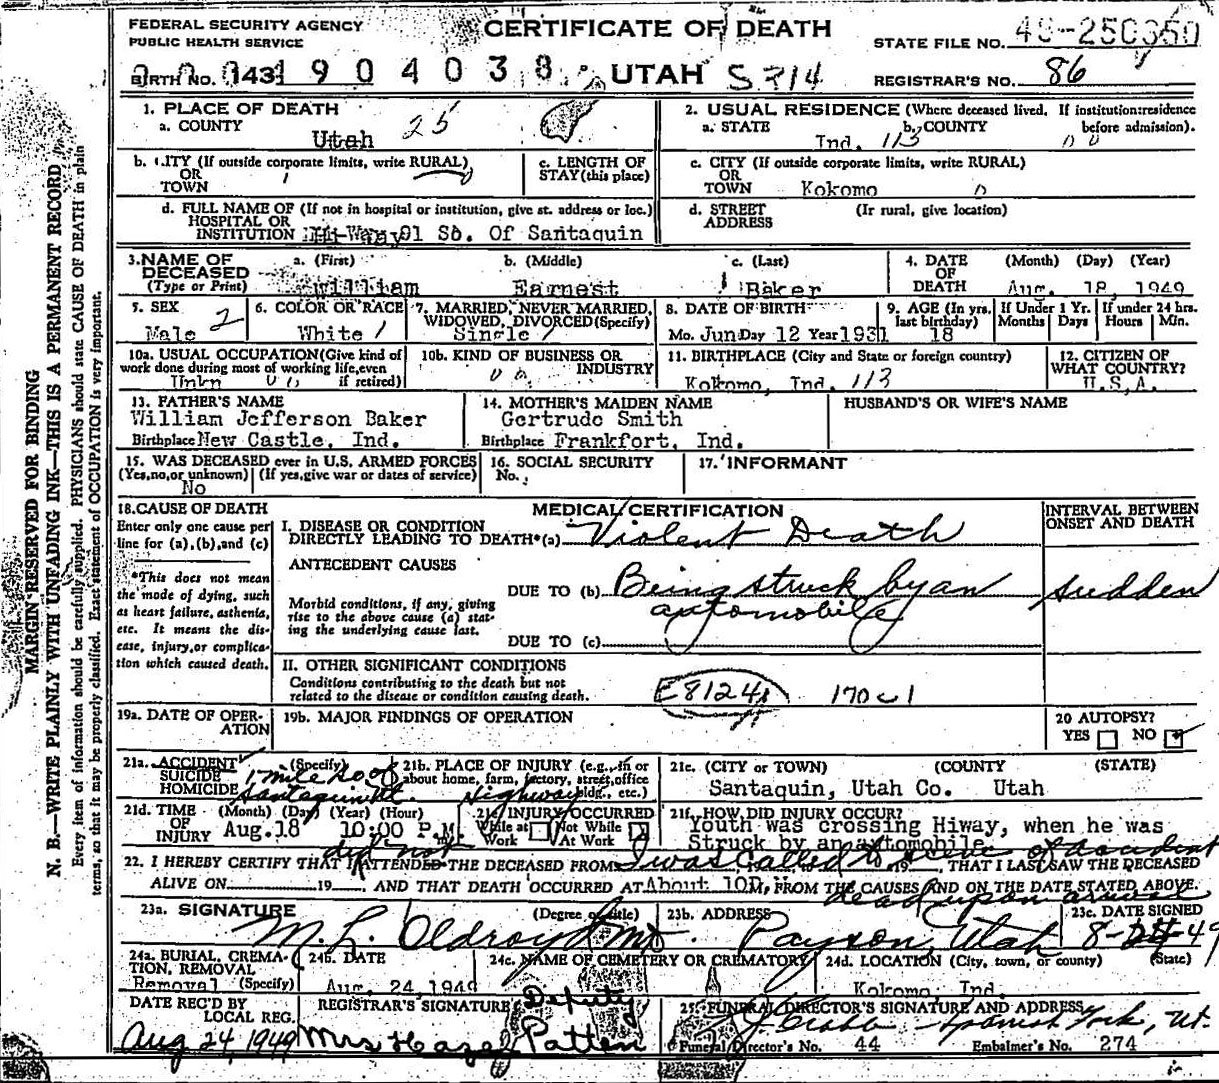 FEDERAL SECURITY AGENCY
PUBLIC HEALTH SERVICE
CERTIFICATE OF DEATH
STATE FILE NO. 49-250350
BIRTH NO. 1431904038 UTAH S 214
REGISTRAR'S NO. 86
1. PLACE OF DEATH
a. COUNTY
Utah 25
2. USUAL RESIDENCE (Where deceased lived. If institution: residence before admission).
a. STATE b. COUNTY
Ind. 113
b. CITY (If outside corporate limits, write RURAL)
OR
TOWN
c. LENGTH OF
STAY (this place)
c. CITY (If outside corporate limits, write RURAL)
OR
TOWN Kokomo
d. FULL NAME OF (If not in hospital or institution, give st. address or loc.)
HOSPITAL OR
INSTITUTION Hi-Way 91 So. Of Santaquin
d. STREET (If rural, give location)
ADDRESS
3. NAME OF
DECEASED
(Type or Print)
a. (First) b. (Middle) c. (Last)
William Earnest Baker
4. DATE (Month) (Day) (Year)
OF
DEATH Aug. 18, 1949
5. SEX
Male 2
6. COLOR OR RACE
White 1
7. MARRIED, NEVER MARRIED,
WIDOWED, DIVORCED (Specify)
Single 1
8. DATE OF BIRTH
Mo. Jun Day 12 Year 1931
9. AGE (In yrs. last birthday)
18
If Under 1 Yr.
Months Days
If under 24 hrs.
Hours Min.
10a. USUAL OCCUPATION (Give kind of
work done during most of working life, even
if retired)
Unkn
10b. KIND OF BUSINESS OR
INDUSTRY
11. BIRTHPLACE (City and State or foreign country)
Kokomo, Ind. 113
12. CITIZEN OF
WHAT COUNTRY?
U.S.A.
13. FATHER'S NAME
William Jefferson Baker
Birthplace New Castle, Ind.
14. MOTHER'S MAIDEN NAME
Gertrude Smith
Birthplace Frankfort, Ind.
HUSBAND'S OR WIFE'S NAME
15. WAS DECEASED ever in U.S. ARMED FORCES
(Yes, no, or unknown) (If yes, give war or dates of service)
No
16. SOCIAL SECURITY
No.
17. INFORMANT
18. CAUSE OF DEATH
Enter only one cause per
line for (a), (b), and (c)
*This does not mean
the mode of dying, such
as heart failure, asthenia,
etc. It means the dis-
ease, injury, or complica-
tion which caused death.
MEDICAL CERTIFICATION
I. DISEASE OR CONDITION
DIRECTLY LEADING TO DEATH*(a) Violent Death
ANTECEDENT CAUSES
DUE TO (b) Being struck by an
automobile
Morbid conditions, if any, giving
rise to the above cause (a) stat-
ing the underlying cause last.
DUE TO (c)
II. OTHER SIGNIFICANT CONDITIONS
Conditions contributing to the death but not
related to the disease or condition causing death.
E8124
INTERVAL BETWEEN
ONSET AND DEATH
sudden
19a. DATE OF OPER-
ATION
19b. MAJOR FINDINGS OF OPERATION
20 AUTOPSY?
YES NO
21a. ACCIDENT (Specify)
SUICIDE
HOMICIDE
1 mile So of
Santaquin Ut.
21b. PLACE OF INJURY (e.g., in or
about home, farm, factory, street, office
bldg., etc.)
Highway
21c. (CITY or TOWN) (COUNTY (STATE)
Santaquin, Utah Co. Utah
21d. TIME (Month) (Day) (Year) (Hour)
OF
INJURY Aug. 18 10:00 P.M.
21e INJURY OCCURRED
While at Work Not While At Work
21f. HOW DID INJURY OCCUR?
Youth was crossing Hiway, when he was
Struck by an automobile
22. I HEREBY CERTIFY THAT I did not ATTENDED THE DECEASED FROM I was called to scene of accident 19, THAT I LAST SAW THE DECEASED
ALIVE ON 19, AND THAT DEATH OCCURRED AT About 10 P. FROM THE CAUSES AND ON THE DATE STATED ABOVE.
dead upon arrival
23a. SIGNATURE (Degree or title)
M. L. Oldroyd MD.
23b. ADDRESS
Payson, Utah
23c. DATE SIGNED
8- 49
24a. BURIAL, CREMA-
TION, REMOVAL
(Specify)
Removal
24b. DATE
Aug. 24, 1949
24c. NAME OF CEMETERY OR CREMATORY
24d. LOCATION (City, town, or county) (State)
Kokomo, Ind.
DATE REC'D BY
LOCAL REG.
Aug 24, 1949
REGISTRAR'S SIGNATURE
Deputy
Mrs Hazel Patten
25. FUNERAL DIRECTOR'S SIGNATURE AND ADDRESS
Spanish Fork, Ut.
Funeral Director's No. 44 Embalmer's No. 274
MARGIN RESERVED FOR BINDING
N. B.—WRITE PLAINLY WITH UNFADING INK—THIS IS A PERMANENT RECORD
Every item of information should be carefully supplied. PHYSICIANS should state CAUSE OF DEATH in plain
terms, so that it may be properly classified. Exact statement of OCCUPATION is very important.